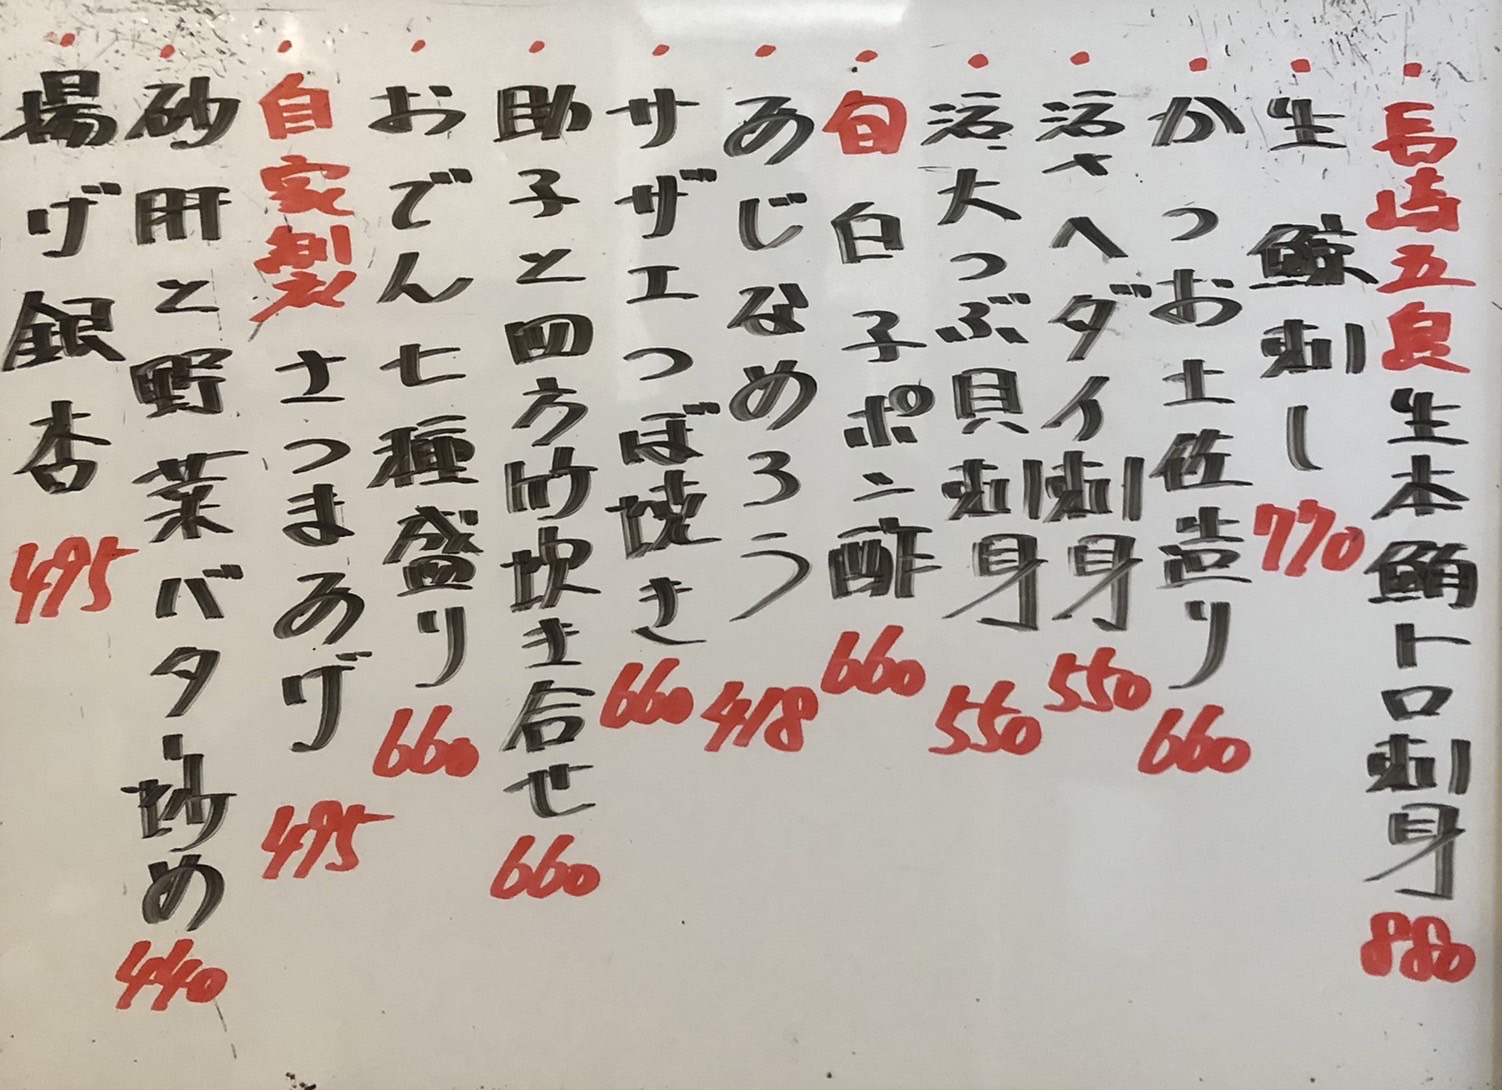 長崎五島生本鮪トロ刺身 880
生鯨刺し 770
かつお土佐造り 660
活さヘダイ刺身 550
活大つぶ貝刺身 550
旬白子ポン酢 660
あじなめろう 418
サザエつぼ焼き 660
助子と四方竹炊き合せ 660
おでん七種盛り 660
自家製さつまあげ 495
砂肝と野菜バター炒め 440
揚げ銀杏 495